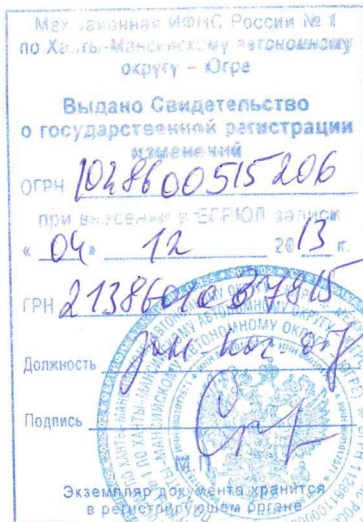 Межрайонная ИФНС России № 1
по Ханты-Мансийскому автономному
округу – Югре
Выдано Свидетельство
о государственной регистрации
изменений
ОГРН 1028600515206
при внесении в ЕГРЮЛ записи
« 04 » 12 2013 г.
ГРН 2138601037815
Должность
Подпись
М.П.
Экземпляр документа хранится
в регистрирующем органе